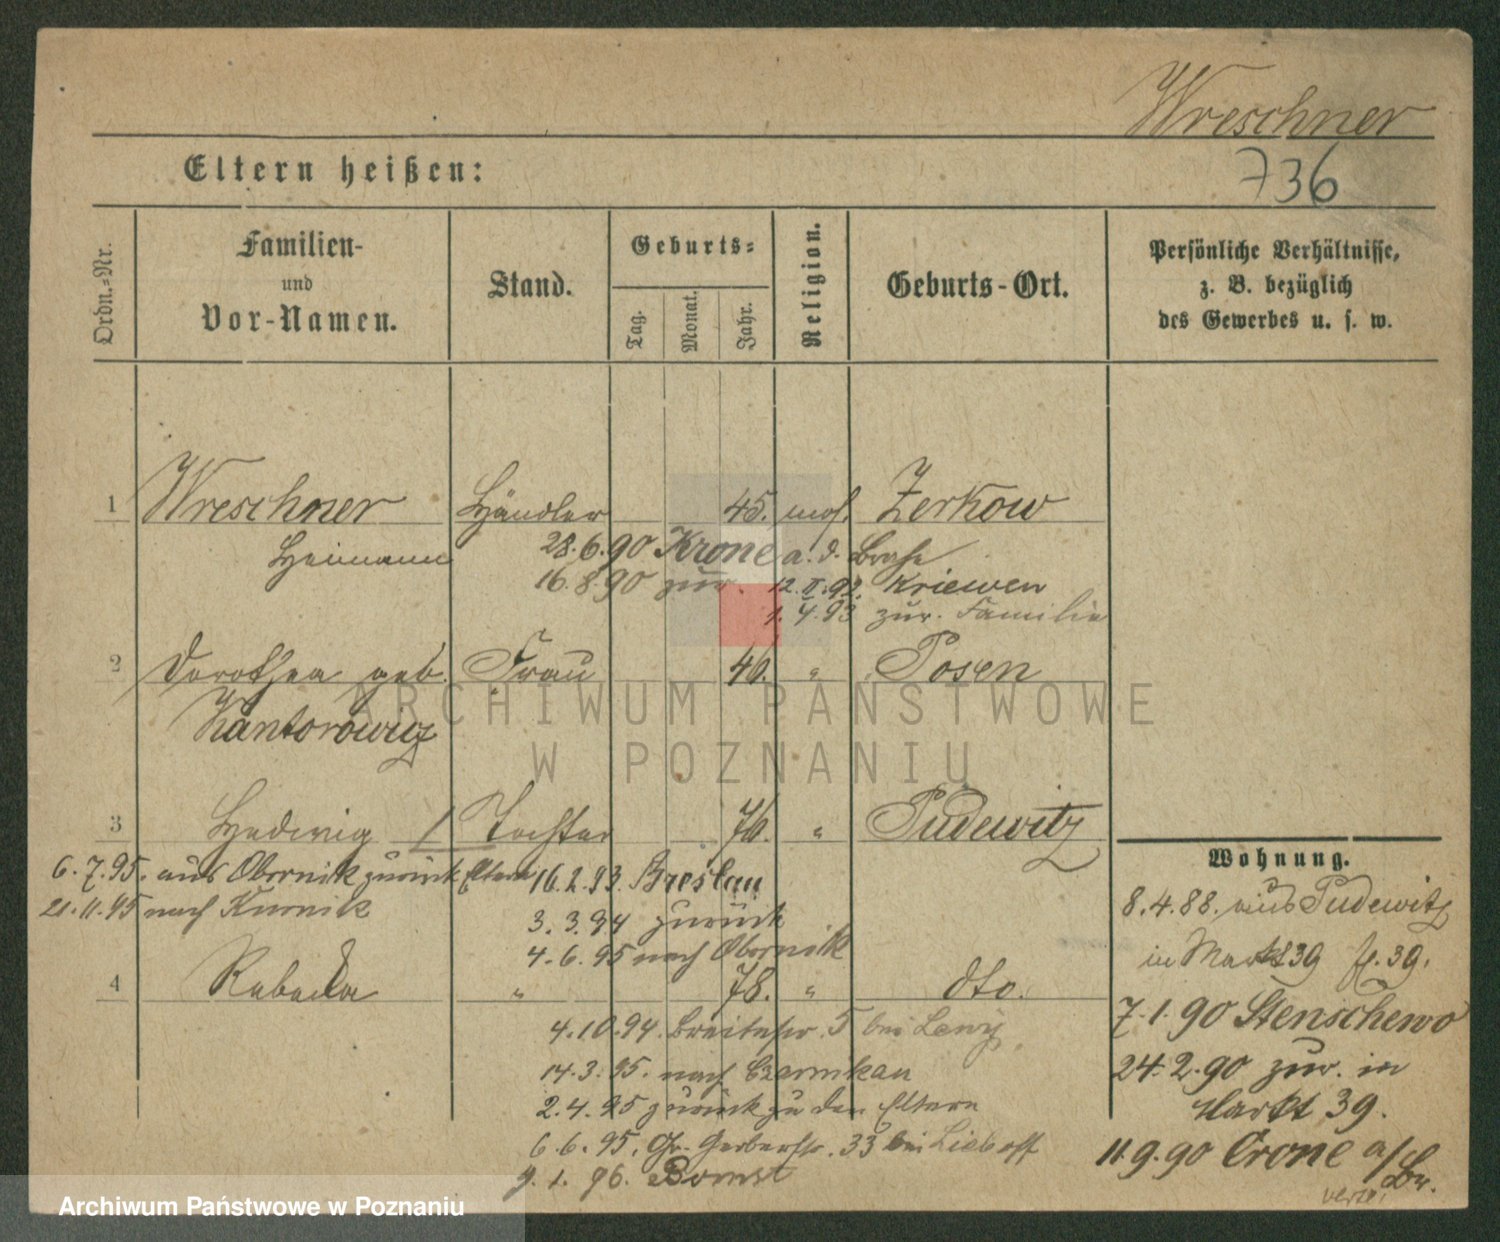 Wreschner
736
Eltern heißen:
Ordn.-Nr.
Familien-
und
Vor-Namen.
Stand.
Geburts-
Tag.
Monat.
Jahr.
Religion.
Geburts-Ort.
Persönliche Verhältnisse,
z. B. bezüglich
des Gewerbes u. s. w.
1 Wreschner Händler 45. mos. Zerkow
Heimann 28.6.90 Krone a. d. Brahe
16.8.90 zur. 12.II.92. Kriewen
1.4.93 zur. Familie
2 Dorothea geb. Frau 46. " Posen
Kantorowicz
ARCHIWUM PAŃSTWOWE
W POZNANIU
3 Hedwig Tochter 76. " Pudewitz
6.7.95. aus Obornik zurück Eltern 16.2.93. Breslau
21.11.95 nach Kurnik
3.3.94 zurück
4.6.95 nach Obornik
4 Rebecka " 78. " dto.
4.10.94. Breitestr. 5 bei Lewy
14.3.95. nach Czarnikau
2.4.95 zurück zu den Eltern
6.6.95. Gr. Gerberstr. 33 bei
9.1.96. Bomst
Wohnung.
8.4.88. aus Pudewitz
in Markt 39 fl. 39.
7.1.90 Stenschewo
24.2.90 zur. in
Markt 39.
11.9.90 Crone a/Br.
verte!
Archiwum Państwowe w Poznaniu